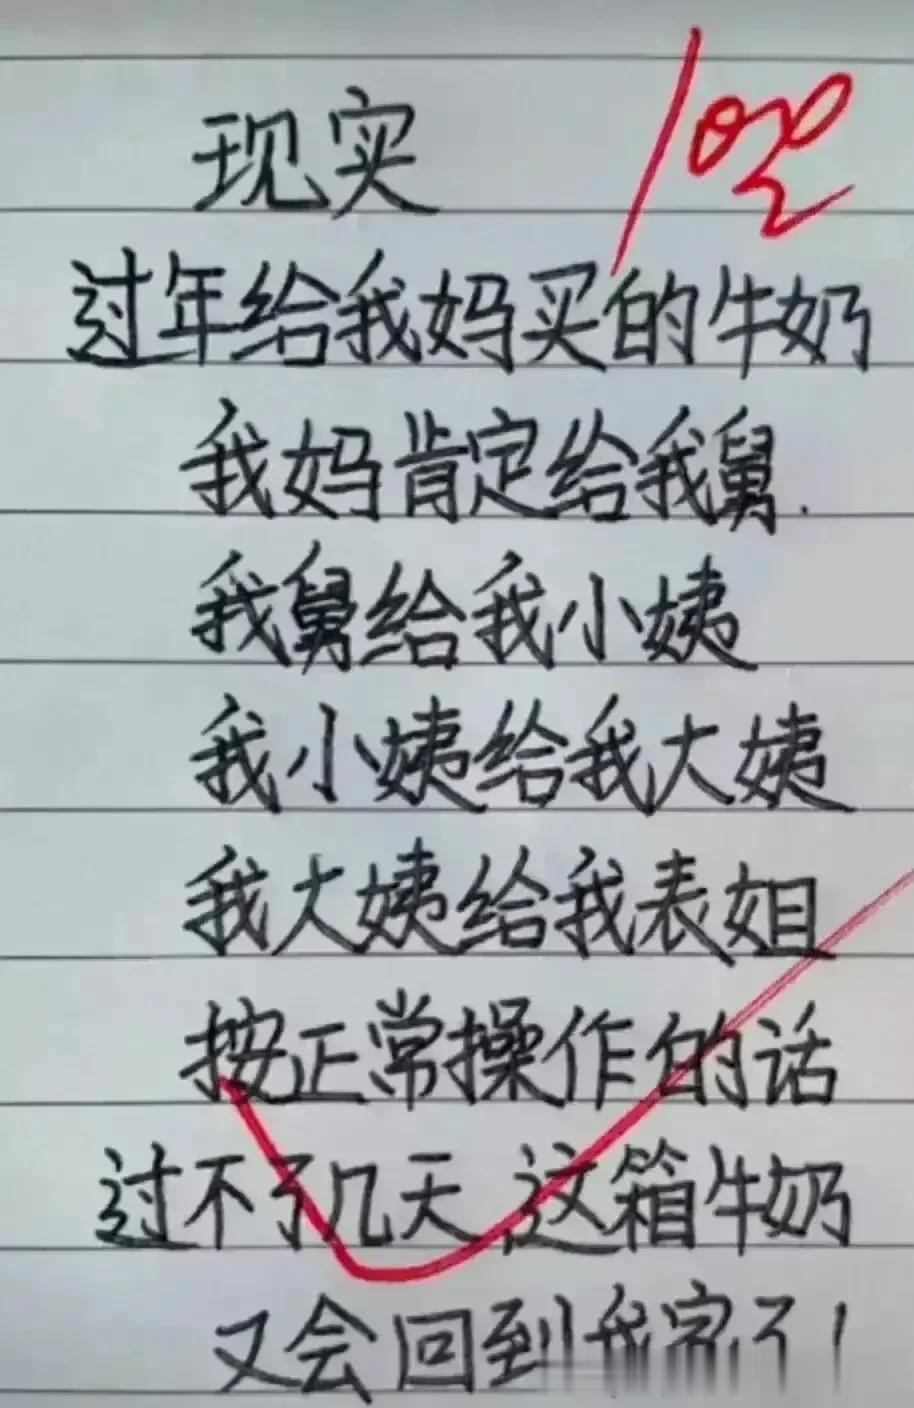 现实
100
过年给我妈买的牛奶
我妈肯定给我舅.
我舅给我小姨
我小姨给我大姨
我大姨给我表姐
按正常操作的话
过不了几天 这箱牛奶
又会回到我家了!